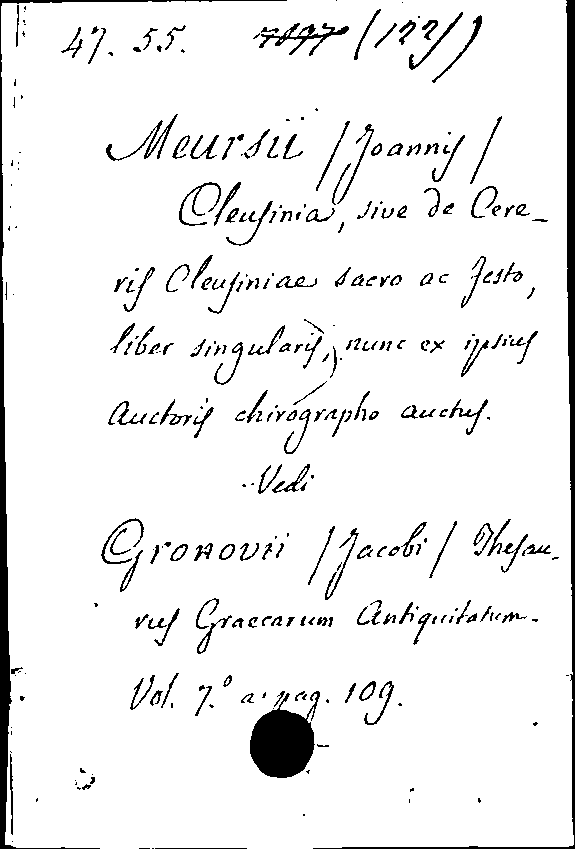 47. 55. (122/)
Meursii /Joannis/
Eleusinia, sive de Cere-
ris Eleusiniae sacro ac festo,
liber singularis, nunc ex ipsius
Auctoris chirographo auctus.
Vedi
Gronovii /Jacobi/ Thesau-
rus Graecarum Antiquitatum.
Vol. 7.º a pag. 109.